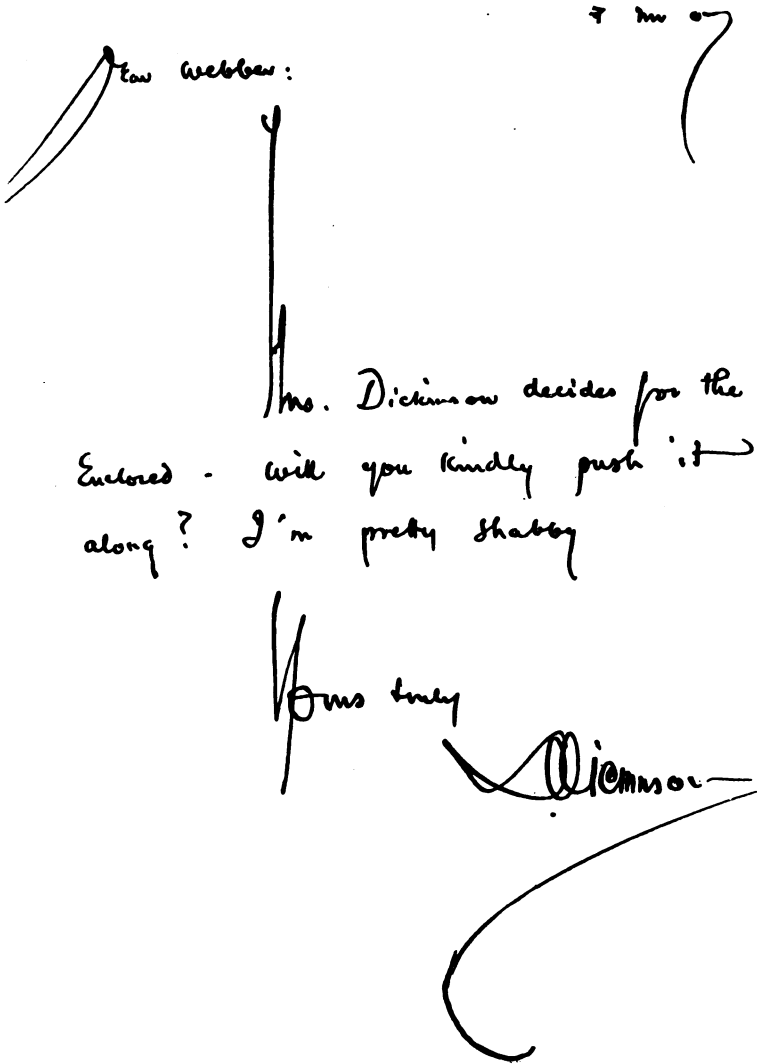 Dear Webber:
Mrs. Dickinson decides for the
Enclosed - will you kindly push it
along? I'm pretty shabby
Yours truly
Dickinson